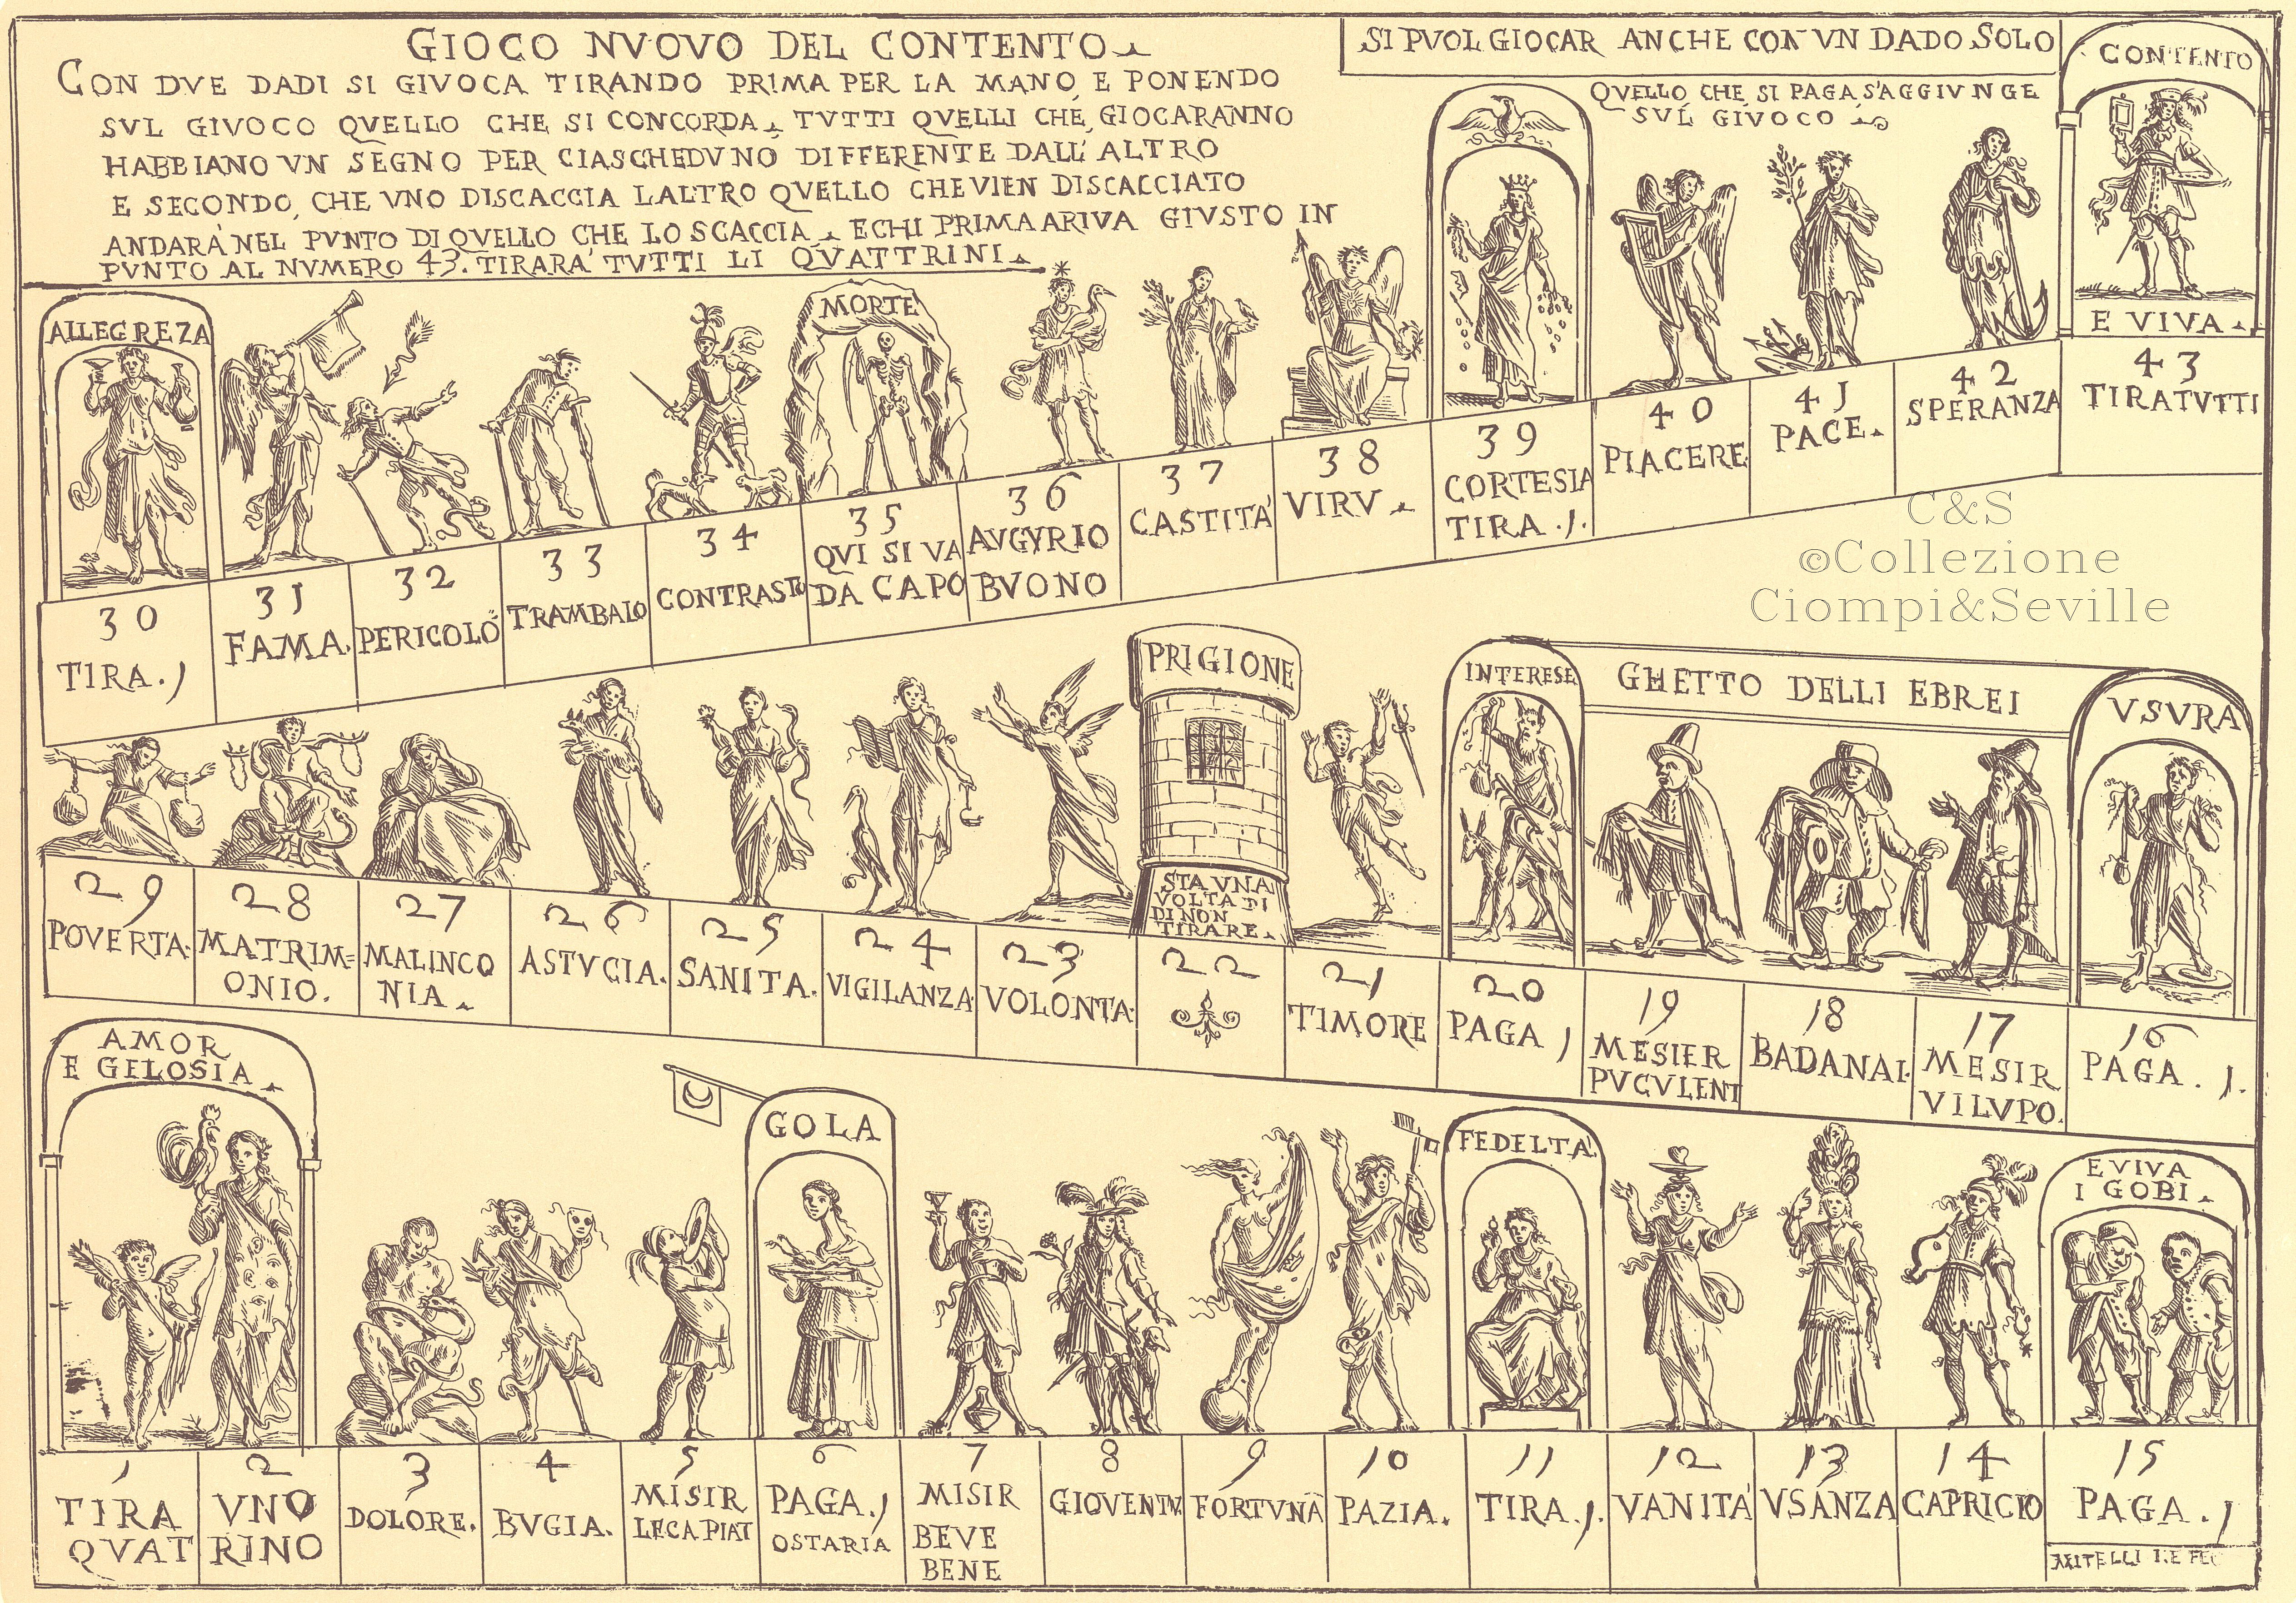 GIOCO NVOVO DEL CONTENTO
CON DVE DADI SI GIVOCA TIRANDO PRIMA PER LA MANO, E PONENDO
SVL GIVOCO QVELLO CHE SI CONCORDA, TVTTI QVELLI CHE GIOCARANNO
HABBIANO VN SEGNO PER CIASCHEDVNO DIFFERENTE DALL'ALTRO
E SECONDO, CHE VNO DISCACCIA LALTRO QVELLO CHE VIEN DISCACCIATO
ANDARA' NEL PVNTO DI QVELLO CHE LO SCACCIA E CHI PRIMA ARIVA GIVSTO IN
PVNTO AL NVMERO 43. TIRARA' TVTTI LI QVATTRINI
SI PVOL GIOCAR ANCHE CON VN DADO SOLO
QVELLO CHE SI PAGA, S'AGGIVNGE
SVL GIVOCO
CONTENTO
E VIVA
43
TIRATVTTI
ALLEGREZA
30
TIRA. 1
31
FAMA.
32
PERICOLO
33
TRAMBALO
34
CONTRASTO
MORTE
35
QVI SI VA
DA CAPO
36
AVGVRIO
BVONO
37
CASTITA'
38
VIRV
39
CORTESIA
TIRA. 1.
40
PIACERE
41
PACE.
42
SPERANZA
C&S
©Collezione
Ciompi&Seville
29
POVERTA.
28
MATRIM=
ONIO.
27
MALINCO
NIA
26
ASTVCIA.
25
SANITA.
24
VIGILANZA
23
VOLONTA.
PRIGIONE
STA VNA
VOLTA DI
DI NON
TIRARE.
22
21
TIMORE
INTERESE
20
PAGA 1
GHETTO DELLI EBREI
19
MESIER
PVCVLENT
18
BADANAI.
17
MESIR
VILVPO.
VSVRA
16
PAGA. 1.
AMOR
E GELOSIA
1
TIRA
QVAT
2
VNO
RINO
3
DOLORE.
4
BVGIA.
5
MISIR
LECA PIAT
GOLA
6
PAGA. 1
OSTARIA
7
MISIR
BEVE
BENE
8
GIOVENTV
9
FORTVNA
10
PAZIA.
FEDELTA'
11
TIRA. 1.
12
VANITA'
13
VSANZA
14
CAPRICIO
E VIVA
I GOBI
15
PAGA. 1
MITELLI